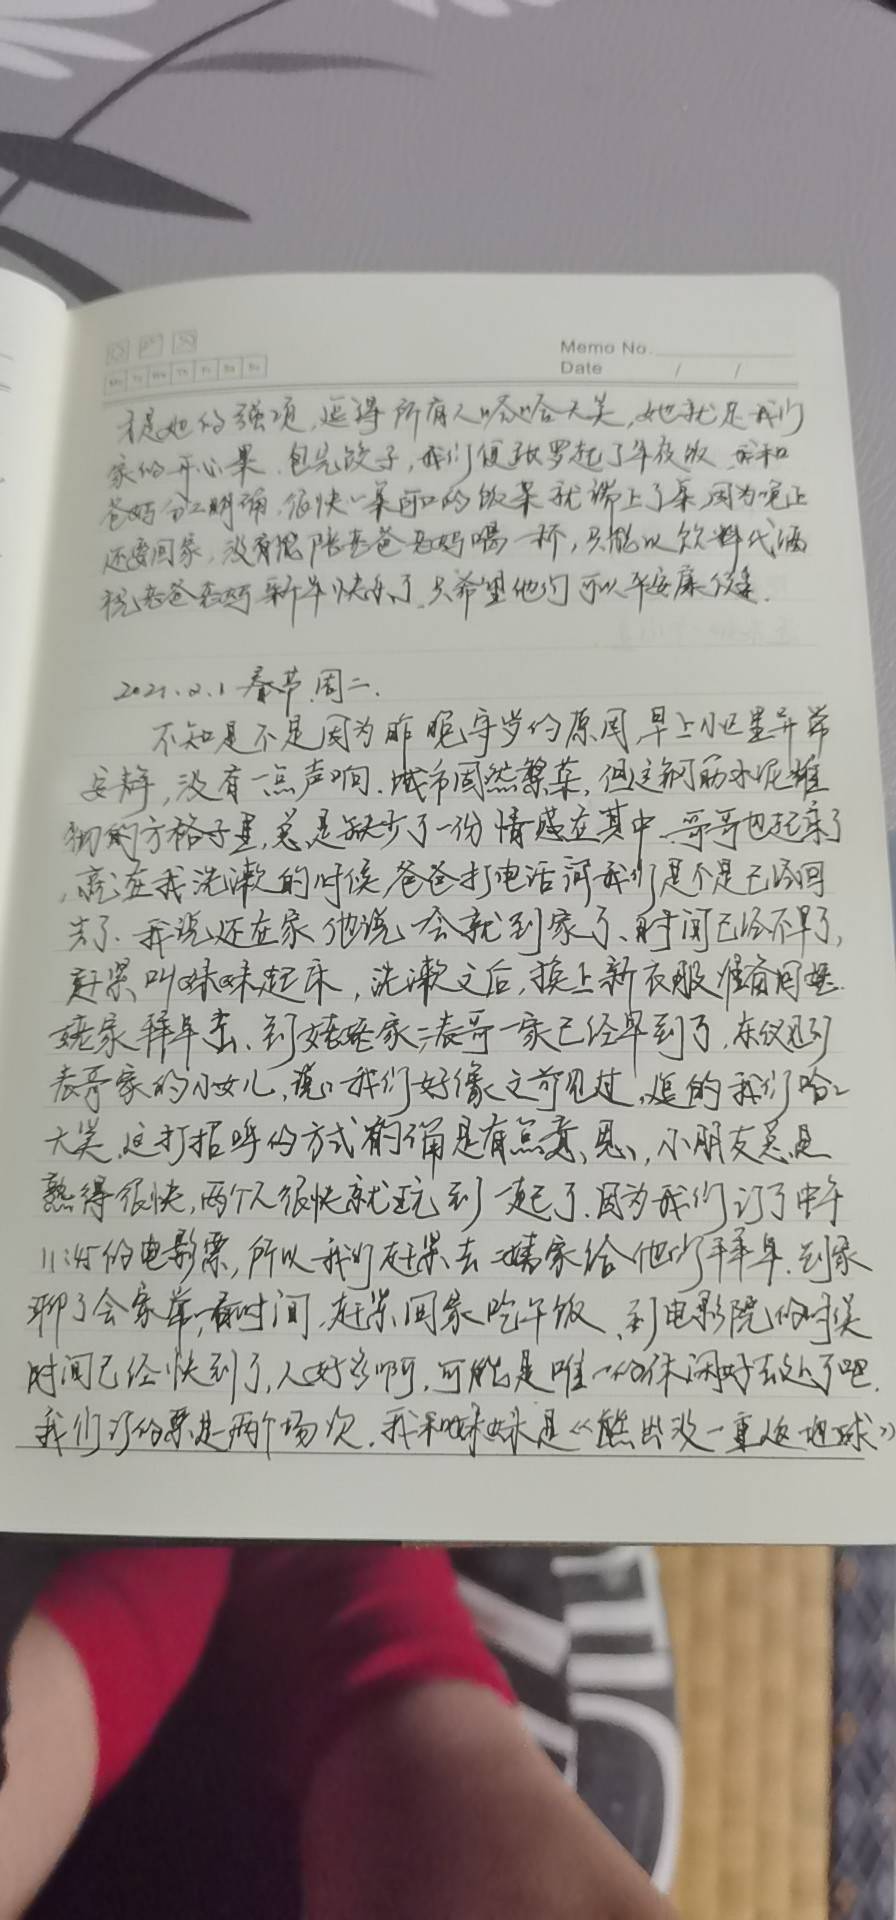 Memo No.
Date / /
Mo Tu We Th Fr Sa Su
才是她的强项，逗得所有人哈哈大笑，她就是我们
家的开心果．包完饺子，我们便张罗起了年夜饭．我和
爸妈分工明确，很快一桌可口的饭菜就端上了桌，因为晚上
还要回家，没有能陪老爸老妈喝一杯，只能以饮料代酒
祝老爸老妈新年快乐了．只希望他们可以平安康健．
2021.2.1 春节 周二．
不知是不是因为昨晚守岁的原因，早上小区里异常
安静，没有一点声响．城市固然繁华，但这钢筋水泥堆
砌的方格子里，总是缺少了一份情感在其中．哥哥也起来了
，就在我洗漱的时候爸爸打电话问我们是不是已经回
去了．我说还在家他说一会就到家了、时间已经不早了，
赶紧叫妹妹起床，洗漱之后，换上新衣服准备同
姥家拜年去、到姥姥家二表哥一家已经早到了，
表哥家的小女儿，说：我们好像之前见过，逗的我们哈哈
大笑，这打招呼的方式的确是有点意思，小朋友总是
熟得很快，两个人很快就玩到一起了．因为我们订了中午
11:45的电影票，所以我们赶紧去二姨家给他们拜年．到家
聊了会家常，看时间，赶紧回家吃午饭、到电影院的时候
时间已经快到了，人好多啊，可能是唯一的休闲好去处了吧．
我们订的票是两个场次．我和妹妹是《熊出没一重返地球》